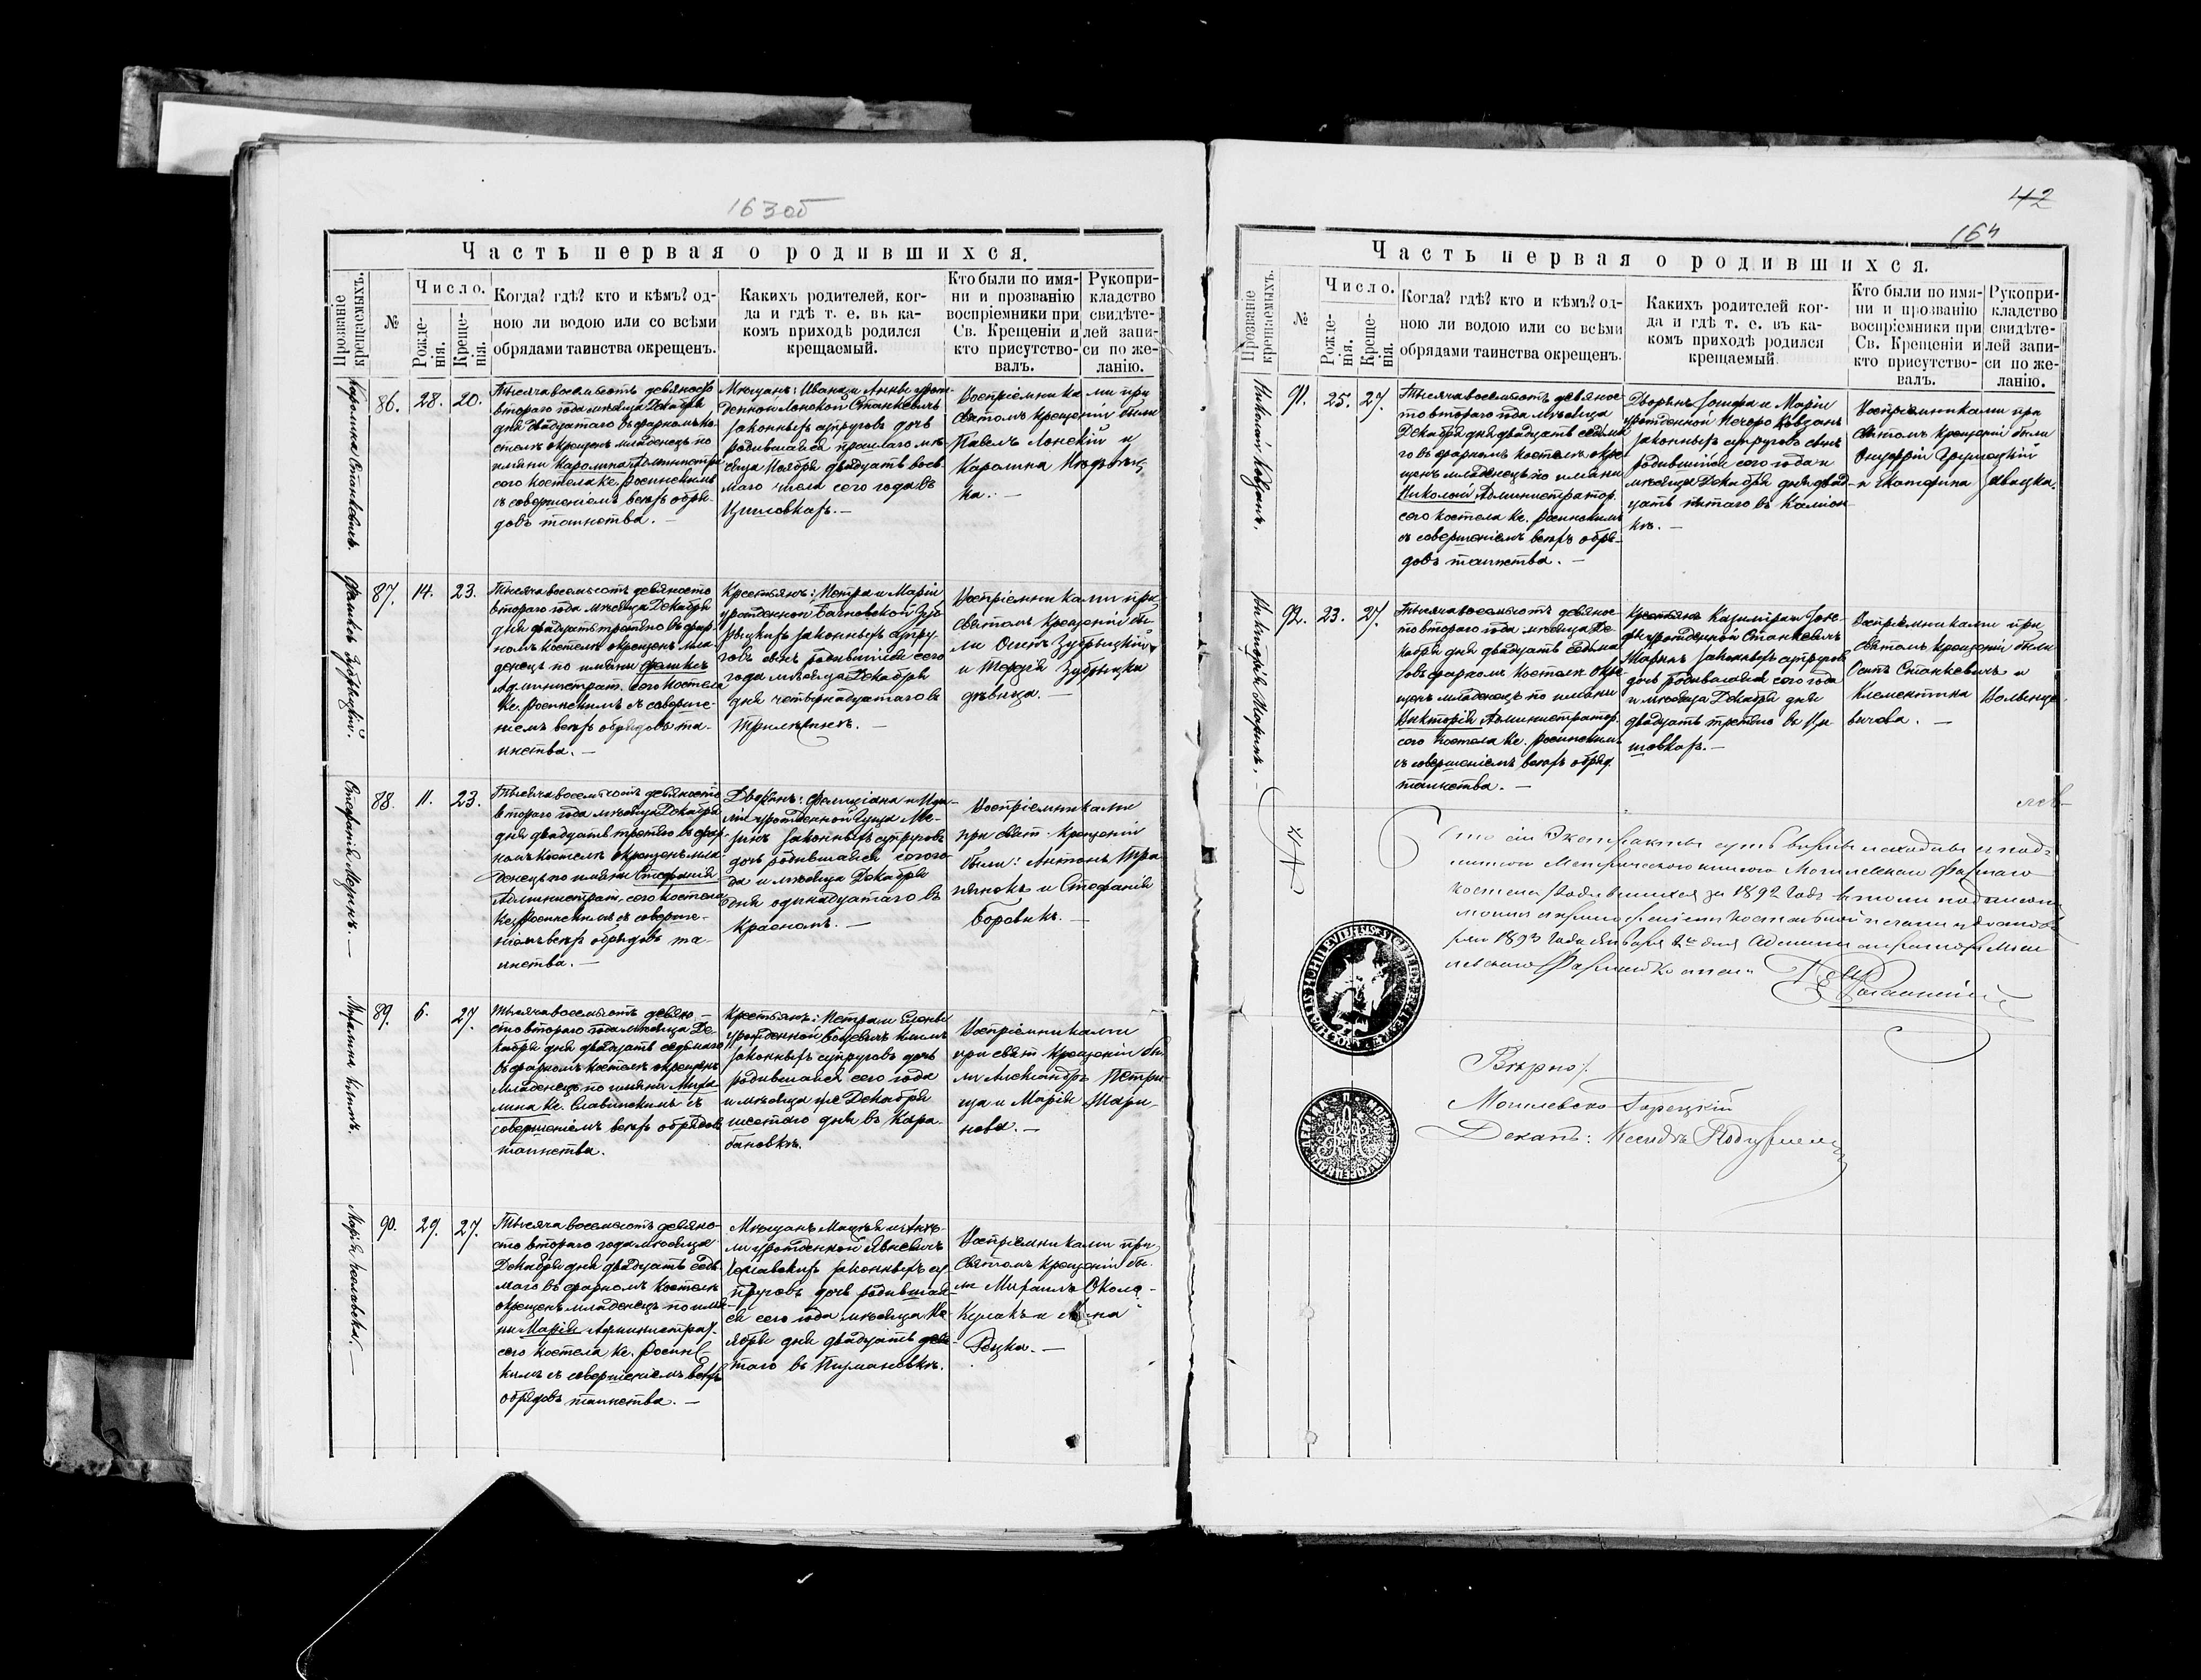 163об
Часть первая о родившихся.
Прозваніе крещаемыхъ.
№
Число.
Рожде-
нія.
Креще-
нія.
Когда? гдѣ? кто и кѣмъ? од-
ною ли водою или со всѣми
обрядами таинства окрещенъ.
Какихъ родителей, ког-
да и гдѣ т. е. въ ка-
комъ приходѣ родился
крещаемый.
Кто были по имя-
ни и прозванію
воспріемники при
Св. Крещеніи и
кто присутство-
валъ.
Рукопри-
кладство
свидѣте-
лей запи-
си по же-
ланію.
Каролина Станкевичъ.
86.
28.
20.
Тысяча восемьсотъ девяносто
втораго года мѣсяца Декабря
дня двадцатаго въ фарномъ ко-
стелѣ окрещенъ младенецъ по
имяни Каролина Администр.
сего костела Кс. Росинскимъ
съ совершеніемъ всѣхъ обря-
довъ таинства. —
Мѣщанъ: Ивана и Анны урож-
денной Лонской Станкевичъ
законныхъ супруговъ дочь
родившаяся прошлаго мѣ-
сяца Ноября двадцать вось-
маго числа сего года въ
Цишовкахъ. —
Воспріемниками при
святомъ крещеніи были
Павелъ Лонскій и
Каролина
ка. —
Феликсъ Зубрыцкій.
87.
14.
23.
Тысяча восемьсотъ девяносто
втораго года мѣсяца Декабря
дня двадцать третяго въ фар-
номъ костелѣ окрещенъ мла-
денецъ по имяни Феликсъ
Администрат. сего костела
Кс. Росинскимъ съ соверше-
ніемъ всѣхъ обрядовъ та-
инства. —
Крестьянъ: Петра и Маріи
урожденной Бачновской Зуб-
рыцкихъ законныхъ супру-
говъ сынъ родившійся сего
года мѣсяца Декабря
дня четырнадцатаго въ
Воспріемниками при
святомъ крещеніи бы-
ли Осипъ Зубрыцкій
и Терезія Зубрыцка
дѣвица. —
Стефанія Меринъ. —
88.
11.
23.
Тысяча восемьсотъ девяносто
втораго года мѣсяца Декабря
дня двадцать третяго въ фар-
номъ костелѣ окрещенъ мла-
денецъ по имяни Стефанія
Администрат. сего костела
Кс. Росинскимъ съ соверше-
ніемъ всѣхъ обрядовъ та-
инства. —
Дворянъ: Фелиціана и
урожденной Гуща Ме-
ринъ законныхъ супруговъ
дочь родившаяся сего го-
да и мѣсяца Декабря
дня одинадцатаго въ
Красномъ. —
Воспріемниками
при свят. крещеніи
были: Антонъ
и Стефанія
Боровикъ. —
Михалина Климъ.
89.
6.
27.
Тысяча восемьсотъ девяно-
сто втораго года мѣсяца Де-
кабря дня двадцать седьмаго
въ фарномъ костелѣ окрещенъ
младенецъ по имяни Миха-
лина Кс. Славинскимъ съ
совершеніемъ всѣхъ обрядовъ
таинства.
Крестьянъ: Петра и Елены
урожденной Климъ
законныхъ супруговъ дочь
родившаяся сего года
и мѣсяца Декабря
шестаго дня въ Кара-
бановкѣ.
Воспріемниками
при свят. крещеніи бы-
ли Александръ Петри-
ца и Марія Мари-
нова. —
Марія —
90.
29.
27.
Тысяча восемьсотъ девяно-
сто втораго года мѣсяца
Декабря дня двадцать седь-
маго въ фарномъ костелѣ
окрещенъ младенецъ по имя-
ни Марія Администрат.
сего костела Кс. Росинс-
кимъ съ совершеніемъ всѣхъ
обрядовъ таинства. —
Мѣщанъ Мацѣя и
урожденной
законныхъ су-
пруговъ дочь родившая-
ся сего года мѣсяца Но-
ября дня двадцать девя-
таго въ
Воспріемниками при
святомъ крещеніи бы-
ли Михаилъ
и Анна
Рецка. —
42
164
Часть первая о родившихся.
Прозваніе крещаемыхъ.
№
Число.
Рожде-
нія.
Креще-
нія.
Когда? гдѣ? кто и кѣмъ? од-
ною ли водою или со всѣми
обрядами таинства окрещенъ.
Какихъ родителей ког-
да и гдѣ т. е. въ ка-
комъ приходѣ родился
крещаемый.
Кто были по имя-
ни и прозванію
воспріемники при
Св. Крещеніи и
кто присутство-
валъ.
Рукопри-
кладство
свидѣте-
лей запи-
си по же-
ланію.
Николай Ковзанъ.
91.
25.
27.
Тысяча восемьсотъ девянос-
то втораго года мѣсяца
Декабря дня двадцать седьма-
го въ фарномъ костелѣ окре-
щенъ младенецъ по имяни
Николай Администратор.
сего костела Кс. Росинскимъ
съ совершеніемъ всѣхъ обря-
довъ таинства. —
Дворянъ Іосифа и Маріи
урожденной Кечоро Ковзанъ
законныхъ супруговъ сынъ
родившійся сего года и
мѣсяца Декабря дня двад-
цать пятаго въ Камион-
кѣ. —
Воспріемниками при
святомъ крещеніи были
Онуфрій
и Екатерина
Викторія Маринъ. —
92.
23.
27.
Тысяча восемьсотъ девянос-
то втораго года мѣсяца Де-
кабря дня двадцать седьма-
го въ фарномъ костелѣ окре-
щенъ младенецъ по имяни
Викторія Администратор.
сего костела Кс. Росинскимъ
съ совершеніемъ всѣхъ обряд.
таинства. —
Крестьянъ Казиміра и Юзе-
фы урожденной Станкевичъ
Маринъ законныхъ супруговъ
дочь родившаяся сего года
и мѣсяца Декабря дня
двадцать третяго въ Ци-
шовкахъ. —
Воспріемниками при
святомъ крещеніи были
Осипъ Станкевичъ и
Клементина
Что сіи Экстракты суть вѣрны и сходны съ под-
линною Метрическою книгою Могилевскаго Фарнаго
костела родившихся за 1892 годъ въ томъ подписомъ
моимъ съ приложеніемъ костельной печати удостовѣ-
ряю 1893 года Января 2го дня Администраторъ Моги-
левскаго Фарнаго Костела
Вѣрно:
Могилевско Горецкій
Деканъ: Ксендзъ